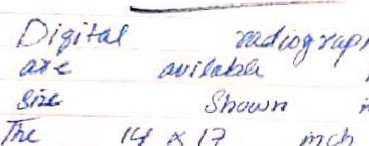 Digital radiograp
are avilable
size Shown
The 14 x 17 inch